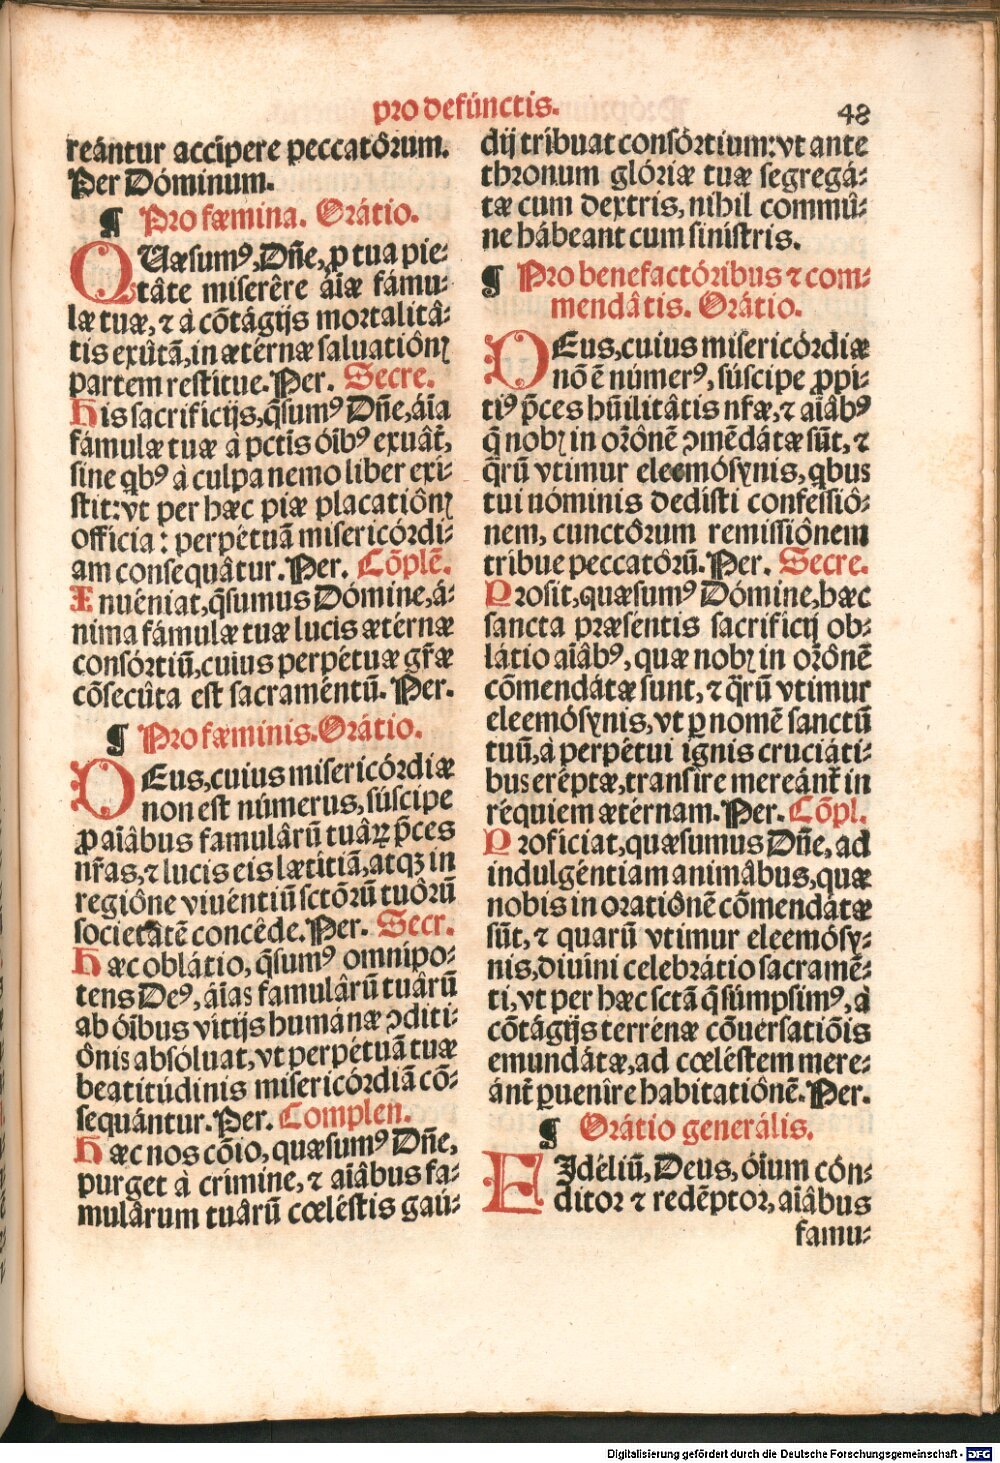 pro defúnctis.
48
reántur accípere peccatôrum.
Per Dóminum.
¶ Pro fæmina. Orátio.
QUæsumꝰ, Dn̄e, ꝓ tua pie⸗
tâte miserêre aīæ fámu⸗
læ tuæ, ⁊ à cōtágijs mortalitâ⸗
tis exûtā, in ætérnæ saluatiônꝭ
partem restítue. Per. Secre.
His sacrificijs, q̄sumꝰ Dn̄e, áīa
fámulæ tuæ à pctīs óībꝰ exuât̄,
sine qbꝰ à culpa nemo liber exi⸗
stit: vt per hæc piæ placatiônꝭ
officia: perpétuā misericórdi⸗
am consequâtur. Per. Cōplē.
Inuéniat, q̄sumus Dómine, á⸗
nima fámulæ tuæ lucis ætérnæ
consórtiū, cuius perpétuæ gr̄æ
cōsecûta est sacraméntū. Per.
¶ Pro fæminis. Orátio.
DEus, cuius misericórdiæ
non est númerus, súscipe
ꝓ aīâbus famulârū tuâꝝ p̄ces
nr̄as, ⁊ lucis eis lætítiā, atqꝫ in
regiône viuéntiū sctōrū tuôrū
societâtē concêde. Per. Secr.
Hæc oblátio, q̄sumꝰ omnípo⸗
tens Deꝰ, áīas famulârū tuârū
ab óībus vítijs humánæ ꝯditi⸗
ônis absóluat, vt perpétuā tuæ
beatitúdinis misericórdiā cō⸗
sequántur. Per. Complen.
Hæc nos cōio, quæsumꝰ Dn̄e,
purget à crimine, ⁊ aīâbus fa⸗
mulârum tuârū cœléstis gaú⸗
dij tríbuat consórtium: vt ante
thronum glóriæ tuæ segregá⸗
tæ cum dextris, nihil commû⸗
ne hábeant cum sinistris.
¶ Pro benefactóribus ⁊ com⸗
mendâtis. Orátio.
DEus, cuius misericórdiæ
nō ē númerꝰ, súscipe ꝓpi⸗
tiꝰ p̄ces hūilitâtis nr̄æ, ⁊ aīâbꝰ
q̄ nobꝭ in or̄ônē ꝯmēdátæ sūt, ⁊
q̄rū vtimur eleemósynis, qbus
tui nóminis dedísti confessiô⸗
nem, cunctôrum remissiônem
tribue peccatôrū. Per. Secre.
Prosit, quæsumꝰ Dómine, hæc
sancta præsentis sacrifícij ob⸗
látio aīâbꝰ, quæ nobꝭ in or̄ônē
cōmendátæ sunt, ⁊ q̄rū vtimur
eleemósynis, vt ꝑ nomē sanctū
tuū, à perpétui ignis cruciáti⸗
bus eréptæ, transîre mereánt̄ in
réquiem ætérnam. Per. Cōpl.
Profíciat, quæsumus Dn̄e, ad
indulgéntiam animâbus, quæ
nobis in oratiônē cōmendátæ
sūt, ⁊ quarū vtimur eleemósy⸗
nis, diuíni celebrátio sacramē⸗
ti, vt per hæc sctā q̄ súmpsimꝰ, à
cōtágijs terrénæ cōuersatiōis
emundátæ, ad cœléstem mere⸗
ánt̄ ꝑuenîre habitatiônē. Per.
¶ Orátio generális.
FIdéliū, Deus, óīum cón⸗
ditor ⁊ redēptor, aīâbus
famu⸗
Digitalisierung gefördert durch die Deutsche Forschungsgemeinschaft - DFG